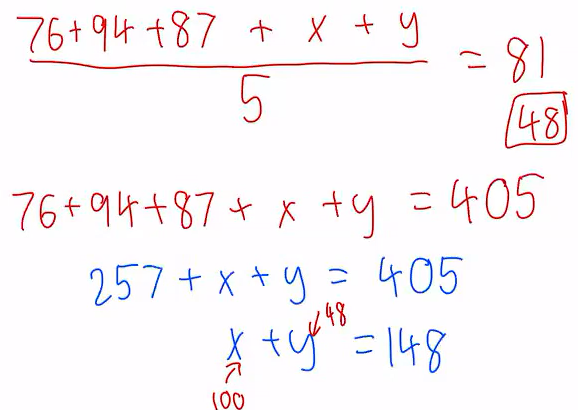 76+94+87 + x + y
5
= 81
48
76+94+87 + x + y = 405
257 + x + y = 405
48
x + y = 148
100